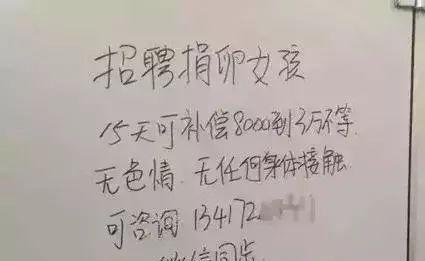 招聘捐卵女孩
15天可补偿8000到3万不等.
无色情.无任何身体接触
可咨询 134172
信同步